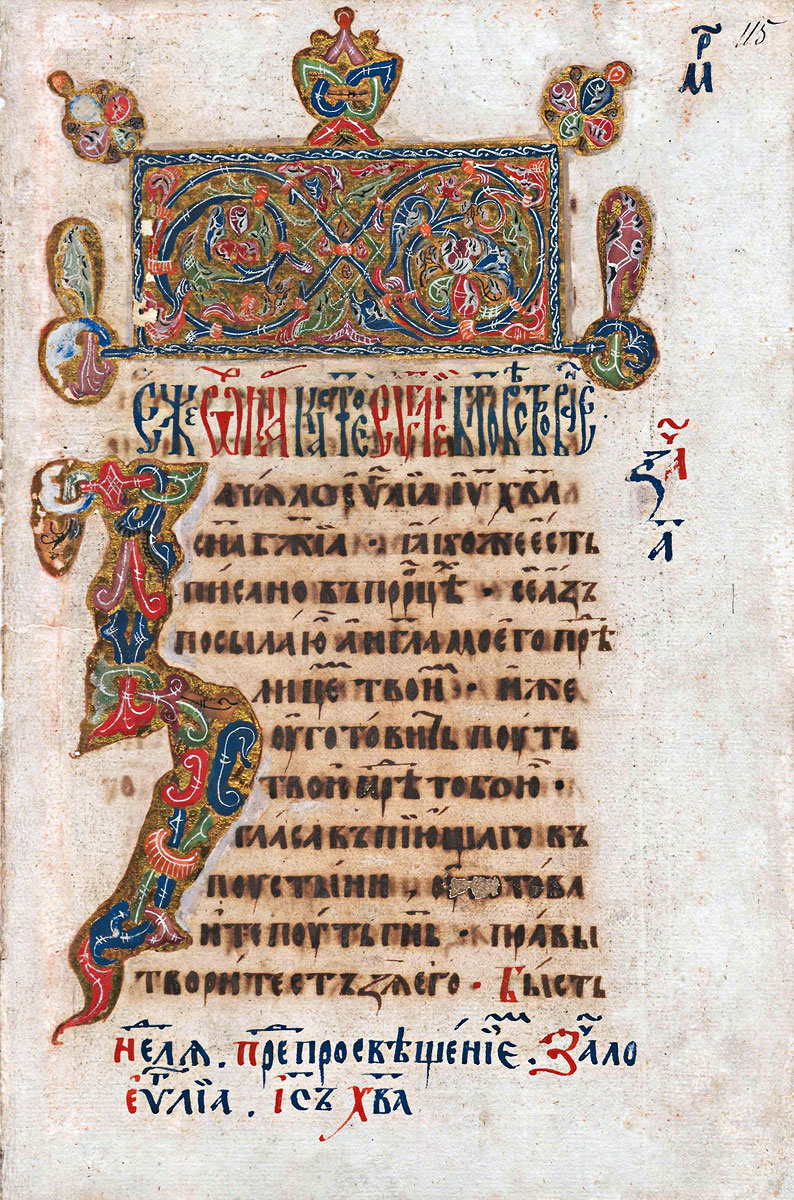 115
р҃м
Єже ѡ҆ Ма́рка ст҃ое Єѵⷢ҇лїе
за҃
а҃
Зачѧло є҆ѵⷢ҇лїа і҆ѵ҃ хв҃а
сн҃а бж҃їа · ꙗ҆́коже є҆́сть
пи́сано въ прⷪ҇ро́цѣ · сѐ а҆́зъ
посыла́ю а҆́нг҃ла моего̀ прⷣѣ
лице́мъ твои҆́мъ · и҆́же
оу҆гото́витъ поу́ть
тво́й прⷣѣ тобо́ю ·
гла́съ въпїю́щаго въ
поусты́ни , това
и҆те поу́ть гн҃ь · пра́вы
твори́те стъзѧ̀ є҆го̀ · Бы́сть
Недⷧ҇ѧ . пре просвѣще́нїе . Зачⷧ҇ало
є҆ѵⷢ҇лїа . і҆с҃ъ хв҃а